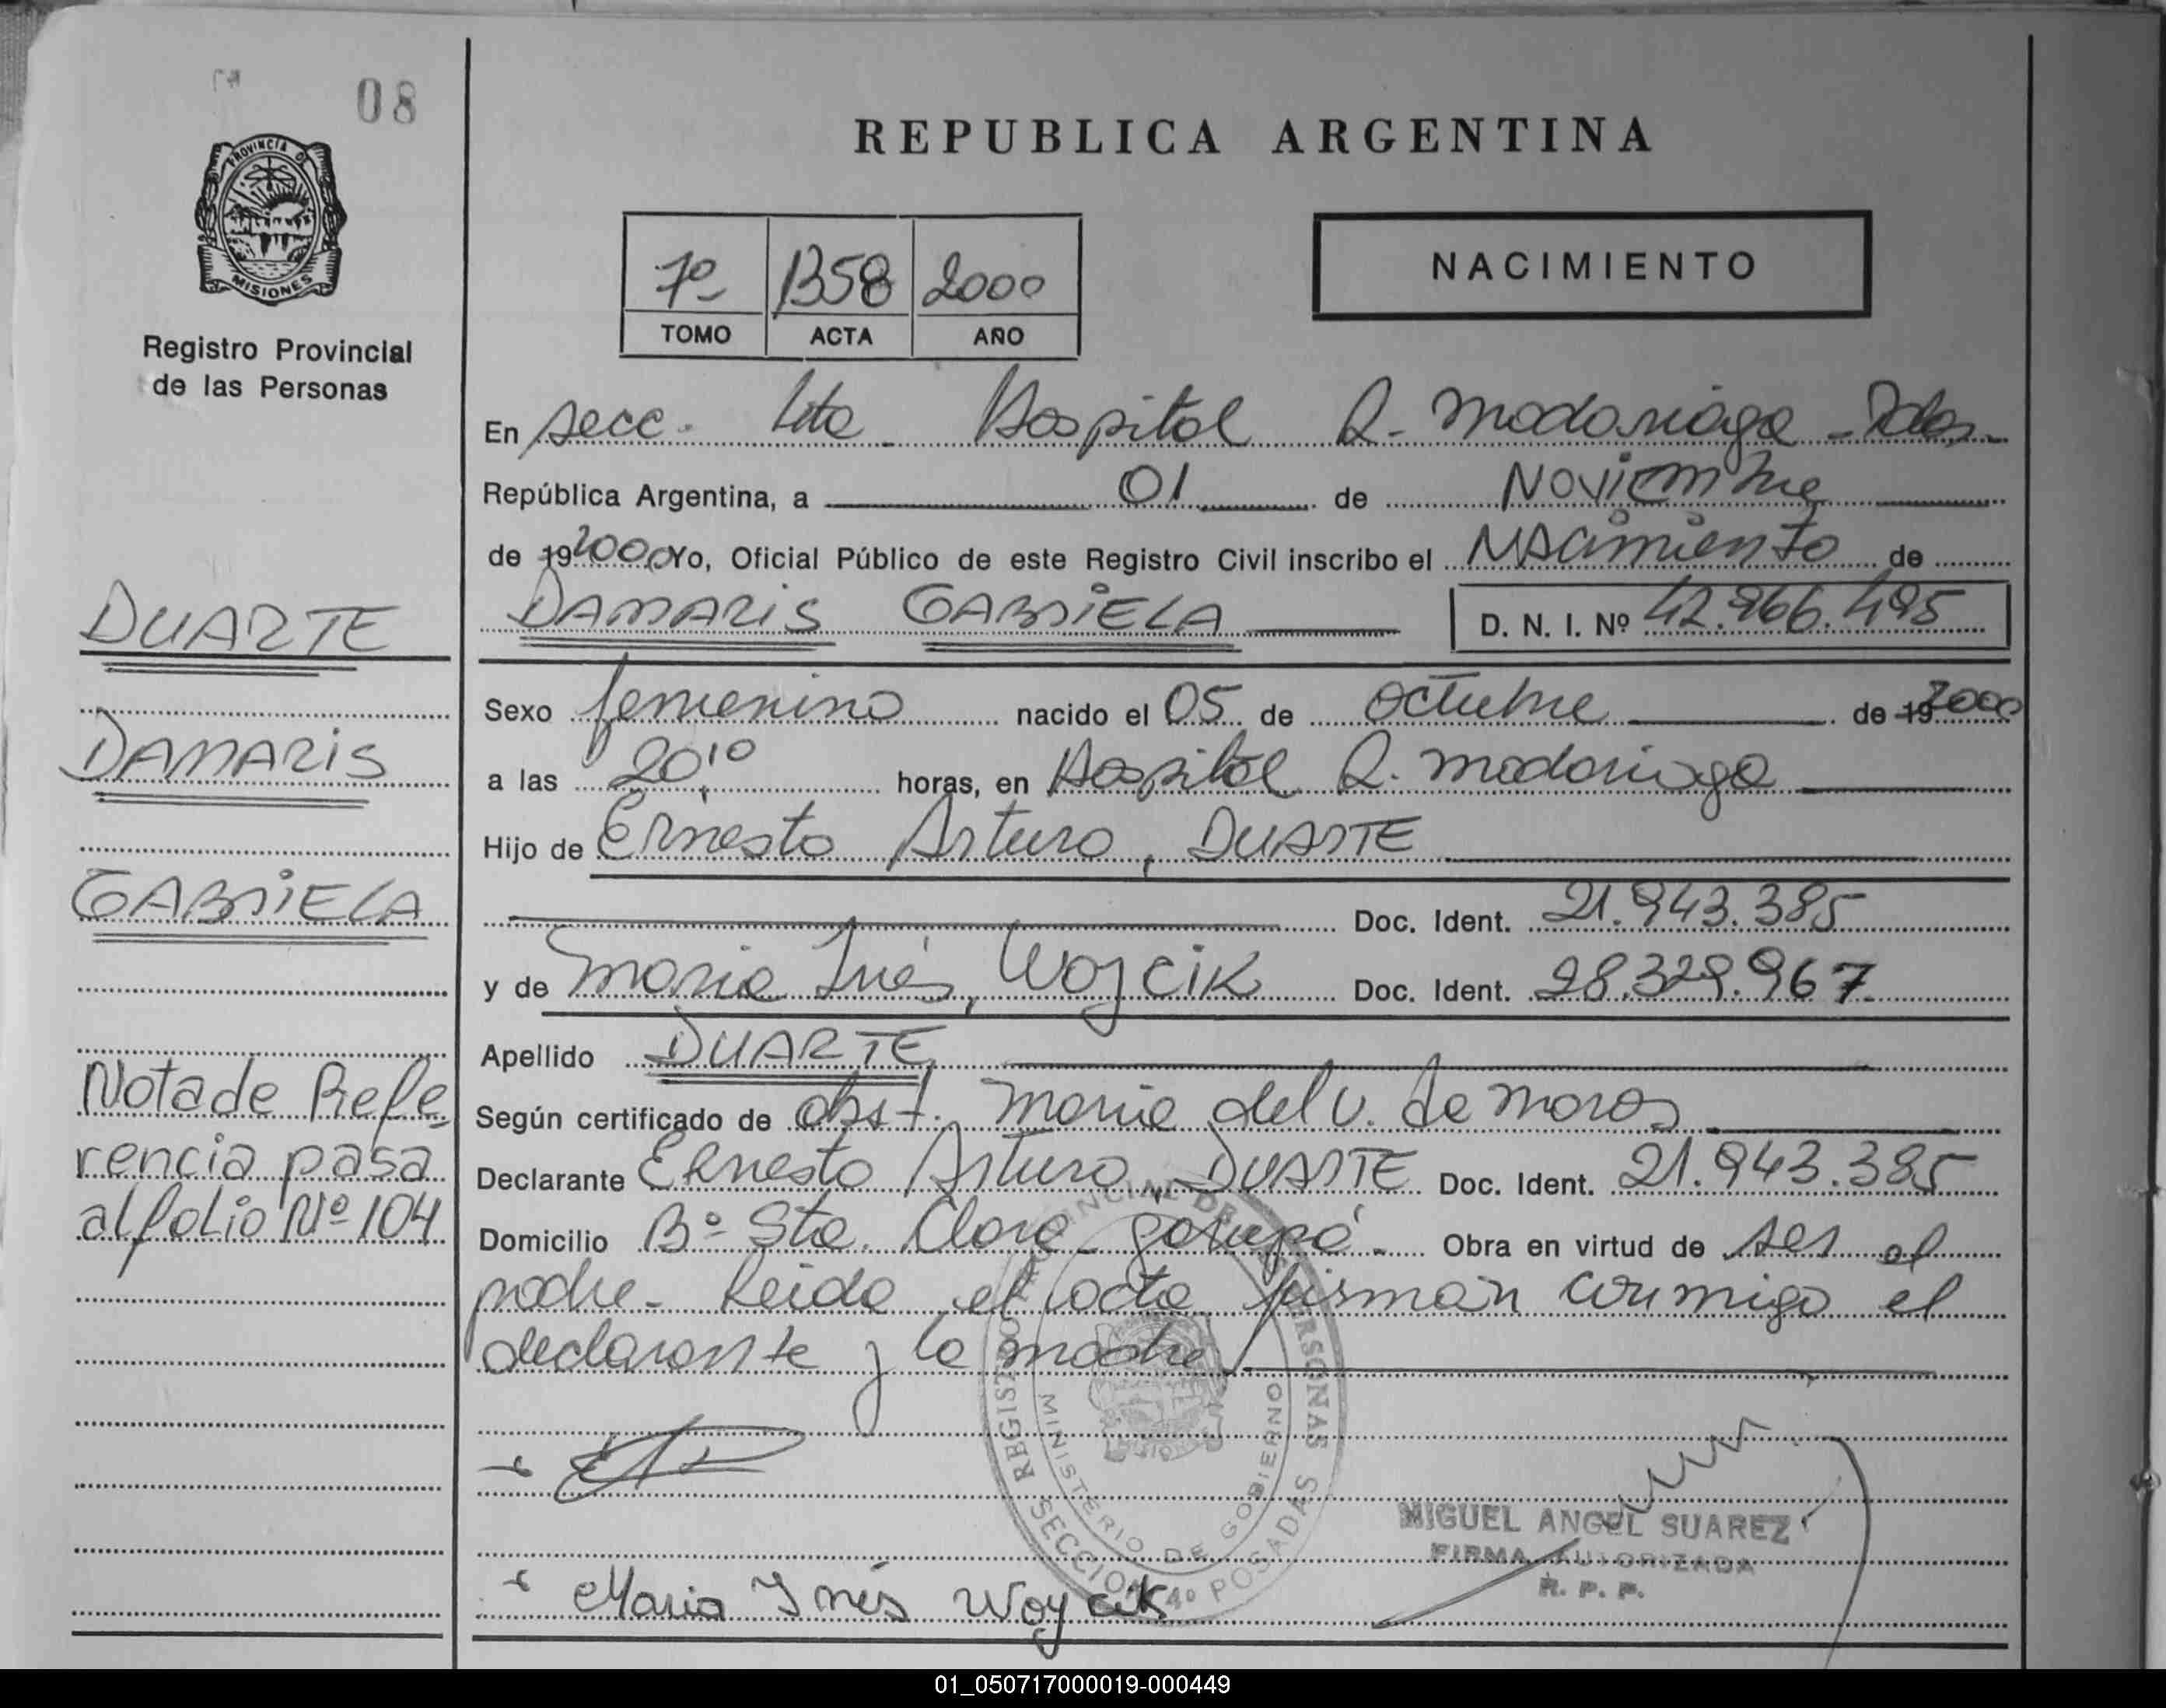 08
PROVINCIA DE
MISIONES
Registro Provincial
de las Personas
REPUBLICA ARGENTINA
7º 1358 2000
TOMO ACTA AÑO
NACIMIENTO
En secc. 4ta Hospital R. Madariaga - Pdas -
República Argentina, a 01 de Noviembre
de 19 2000 Yo, Oficial Público de este Registro Civil inscribo el NACimiento de
DAMARIS GABRIELA D. N. I. Nº 42.966.495
Sexo femenino nacido el 05 de octubre de 19 2000
a las 20,10 horas, en Hospital R. Madariaga
Hijo de Ernesto Arturo, DUARTE
Doc. Ident. 21.943.385
y de Maria Inés, Wojcik Doc. Ident. 28.329.967
Apellido DUARTE
Según certificado de obst. Maria del V. de Moros
Declarante Ernesto Arturo, DUARTE Doc. Ident. 21.943.385
Domicilio Bº Sta. Clara - Garupá - Obra en virtud de ser el
padre - Leida el acta firman conmigo el
declarante y la madre
DUARTE
DAMARIS
GABRIELA
Nota de Refe
rencia pasa
al folio Nº 104
REGISTRO PROVINCIAL DE LAS PERSONAS
MINISTERIO DE GOBIERNO
SECCION 4º POSADAS
MIGUEL ANGEL SUAREZ
FIRMA AUTORIZADA
R. P. P.
Maria Inés Woycik
01_050717000019-000449